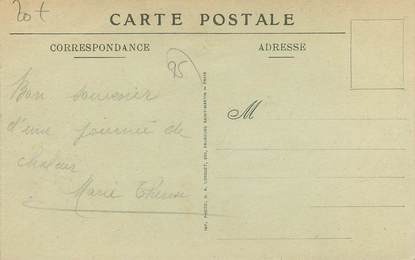 20f
CARTE POSTALE
CORRESPONDANCE
ADRESSE
95
Bon souvenir
d'une journée de
chaleur
Marie Thérèse
M